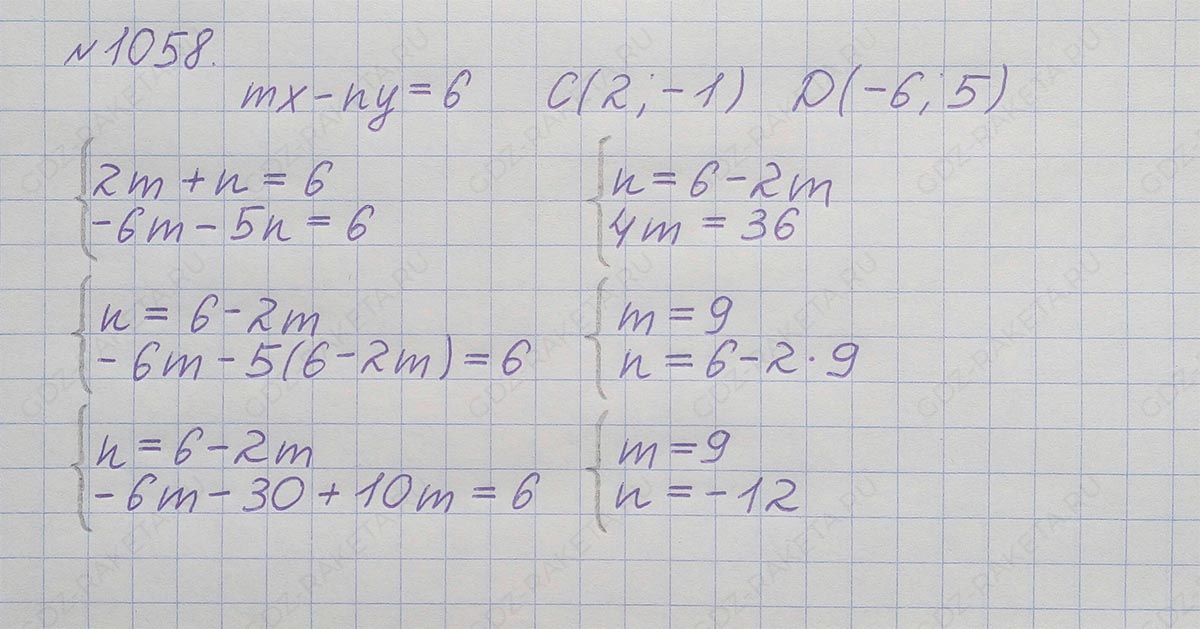 №1058.
mx-ny=6 C(2;-1) D(-6;5)
2m+n=6
-6m-5n=6
n=6-2m
-6m-5(6-2m)=6
n=6-2m
-6m-30+10m=6
n=6-2m
4m=36
m=9
n=6-2·9
m=9
n=-12
GDZ-RAKETA.RU